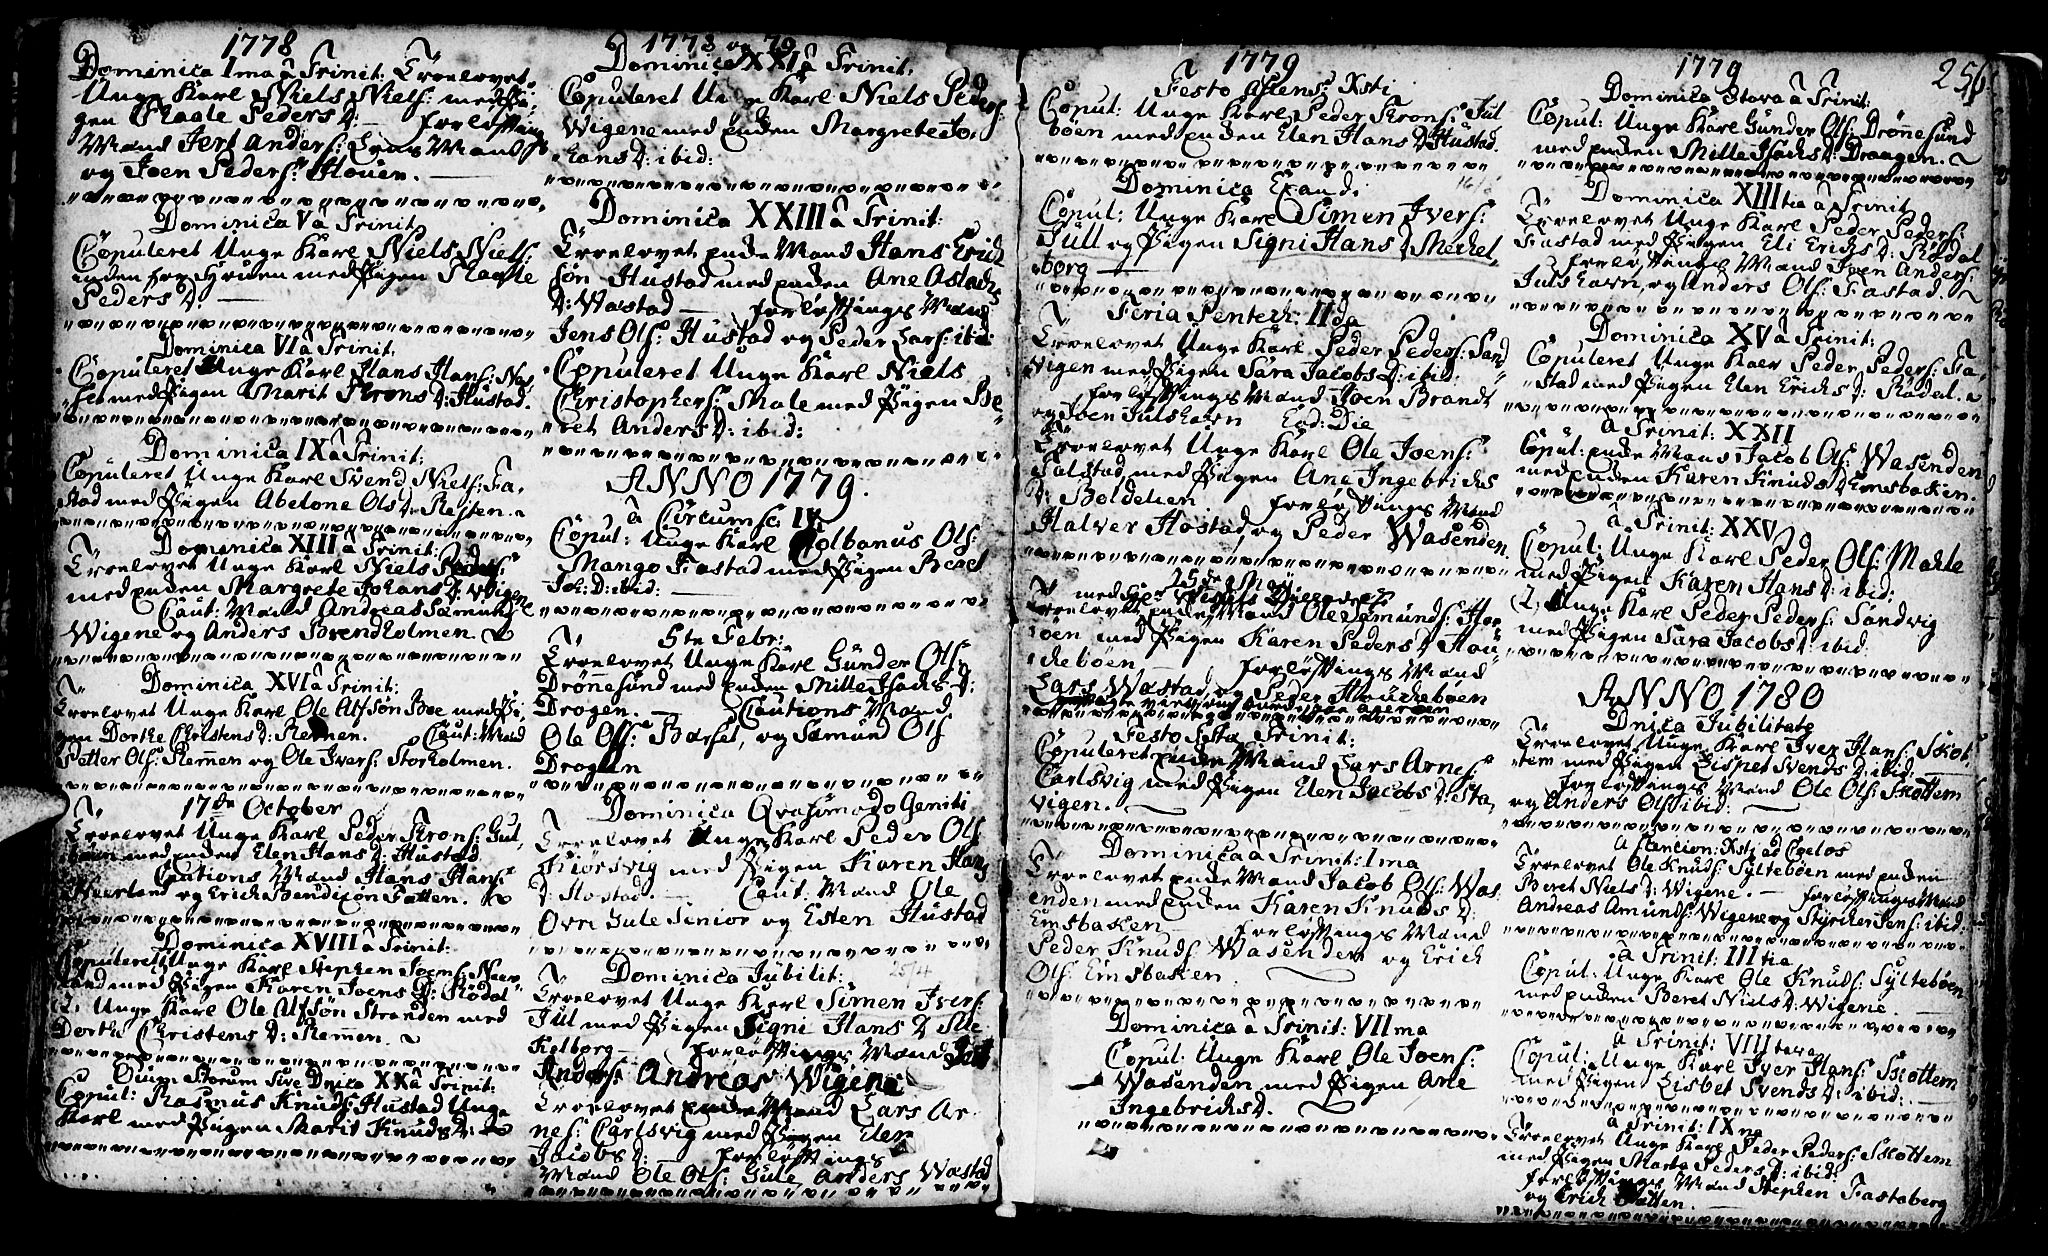 1778
Dominica I ma â Trinit: Troelovet
Unge Karl Niels Niels: med Pi„
gen Maale Peders D: — forlofting
Mand Jert Anders:
og Joen Peders: Houen. —
Dominica V â Trinit:
Copuleret Unge Karl Niels Niels:
med Pigen Maale
Peders D: —
Dominica VI â Trinit.
Copuleret Unge Karl Hans Hans: Nas„
med Pigen Marit Trons D: Hustad.
Dominica IX â Trinit:
Copuleret Unge Karl Svend Niels: Fa„
stad med Pigen Abelone Ols D: Reiten.
Dominica XIII â Trinit:
Troelovet Unge Karl Niels Peders:
med Enken Margrete Johans D: Wigene
Caut: Mand Andreas Samunds:
Wigene og Anders Brendholmen.
Dominica XVI â Trinit:
Troelovet Unge Karl Ole Alfsøn Boe med Pi„
gen Dorthe Christens D: Remen. Caut: Mænd
Petter Ols: Remen og Ole Ivers: Storholmen.
17de October
Troelovet Unge Karl Peder Trons: Gul„
bøen med Enken Elen Hans D: Hustad
Cautions Mænd Hans Hans:
og Erich Bendixøn Fatten.
Dominica XVIII â Trinit:
Copuleret Unge Karl Stephen Joens: Nerr„
land med Pigen Karen Joens D: Rødal
2, Unge Karl Ole Alfsøn Stranden med
Dorthe Christens D: Remen.
Dnica XX â Trinit:
Copul: Rasmus Knuds: Hustad Unge
Karl med Pigen Marit Knuds D:
1778 og 79
Dominica XXI â Trinit.
Copuleret Unge Karl Niels Peders:
Wigene med Enken Margrete Jo„
hans D: ibid:
Dominica XXIII â Trinit:
Troelovet Enke Mand Hans Erich
søn Hustad med Enken Ane Aslachs
D: Wastad — forloftings Mænd
Jens Ols: Hustad og Peder Lars: ibid:
Copuleret Unge Karl Niels
Christophers: Male med Pigen Be„
ret Anders D: ibid:
ANNO 1779.
â Circumsc: IV
Copul: Unge Karl Kolbanus Ols:
Mango Fastad med Pigen Beret
D: ibid: —
5te Febr:
Troelovet Unge Karl Günder Ols:
Drönnesund med Enken Mille Isachs D:
Drogen. Cautions Mænd
Ole Ols: Farset, og Samund Ols
Drogen
Dominica Qvasimodo Geniti
Troelovet Unge Karl Peder Ols
Kiörsvig med Pigen Karen Hans
D: Hostad. — Caut: Mænd Ole
Ovre Gule Senior og Esten Hustad
Dominica Jubilit: 25/4
Troelovet Unge Karl Simen Ivers:
Jul med Pigen Signi Hans D
Kelborg — forloftings Mænd
Anders: Andreas Wigene
Troelovet Enke Mand Lars Ar„
nes: Carlsvig med Pigen Elen
Jacobs D: forloftings
Mænd Ole Ols: Gule, Anders Wastad
1779
Festo Ascens: Xsti
Copul: Unge Karl Peder Trons: Jul
bøen med Enken Elen Hans D Hustad.
Dominica Exaudi 16/5
Copul: Unge Karl Simen Ivers:
Jull og Pigen Signi Hans D Mekel„
borg —
Feria Pentech: II da
Troelovet Unge Karl Peder Peders: Sand
vigen med Pigen Sara Jacobs D: ibid:
forloftings Mænd Joen Brandt
og Joen Julshavn Eod: Die
Troelovet Unge Karl Ole Joens:
Talstad med Pigen Ane Ingebrichs
D: Boldelien forloftings Mænd
Halver Hostad og Peder Wasenden.
25de Maij
Troelovet Enke Mand Ole Samunds: Hou
bøen med Pigen Karen Peders D: Hou„
chebøen — forloftings Mænd
Lars Wastad og Peder Houchebøen
Festo Ssta Trinit:
Copuleret Enke Mand Lars Arnes:
Carlsvig med Pigen Elen Jacobs D: Sta„
vigen.
Dominica â Trinit: I ma
Troelovet Enke Mand Jacob Ols: Was„
enden med Enken Karen Knuds D:
Ernsbaken — forloftings Mænd
Peder Knuds: Wasenden og Erich
Ols: Ernsbaken.
Dominica â Trinit: VII ma
Copul: Unge Karl Ole Joens:
Wasenden med Pigen Ane
Ingebrichs D.
1779
256
Dominica 8tava â Trinit:
Copul: Unge Karl Günder Ols: Drönnesund
med Enken Mille Isachs D: Draagen.
Dominica XIII tia â Trinit
Troelovet Unge Karl Peder Peders:
Fastad med Pigen Eli Erichs D: Rødal
forloftings Mænd Joen Anders:
Julshavn, og Anders Ols: Fastad.
Dominica XV â Trinit:
Copuleret Unge Karl Peder Peders: Fa„
stad med Pigen Elen Erichs D: Rødal.
â Trinit: XXII
Copul: Enke Mand Jacob Ols: Wasenden
med Enken Karen Knuds D: Ernsbaken.
â Trinit: XXV
Copul: Unge Karl Peder Ols: Mahle
med Pigen Karen Hans D: ibid:
2, Unge Karl Peder Peders: Sandvig
med Pigen Sara Jacobs D: ibid.
ANNO 1780
Dnica Jubilitate
Troelovet Unge Karl Iver Hans: Skot„
tem med Pigen Lisbet Svends D: ibid: —
forloftings Mænd Ole Ols: Skottem
og Anders Ols: ibid:
Ascention: Xsti ad Coelos
Troelovet Ole Knuds: Syltebøen med Enken
Beret Niels D: Wigene. — forloftings Mænd
Andreas Amunds: Wigene og Styrcher Jens: ibid:
â Trinit: III tia
Copul: Unge Karl Ole Knuds: Syltebøen
med Enken Beret Niels D: Wigene. —
â Trinit: VIII tava
Copul: Unge Karl Iver Hans: Skottem
med Pigen Lisbet Svends D: ibid: —
â Trinit: IX na
Troelovet Unge Karl Peder Peders: Skottem
med Pigen Marta Peders D: ibid:
forloftings Mænd Stephen Fastaberg
og Erich Fatten. —